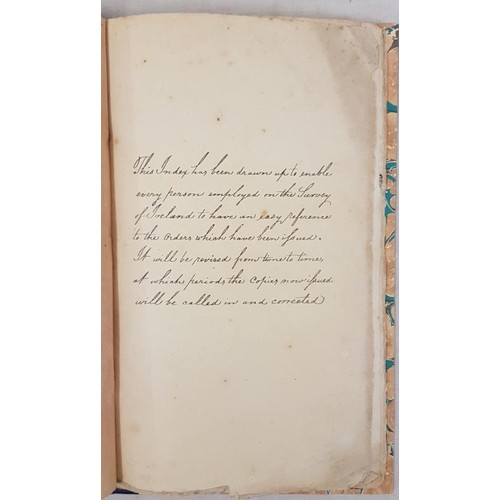 This Index has been drawn up to enable
every person employed on the Survey
of Ireland to have an easy reference
to the Orders which have been issued.
It will be revised from time to time,
at which periods the Copies now issued
will be called in and corrected